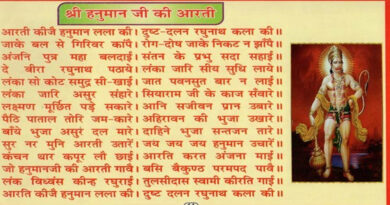 श्री हनुमान जी की आरती
आरती कीजै हनुमान लला की। दुष्ट-दलन रघुनाथ कला की॥
जाके बल से गिरिवर काँपै। रोग-दोष जाके निकट न झाँपै॥
अंजनि पुत्र महा बलदाई। संतन के प्रभु सदा सहाई॥
दे बीरा रघुनाथ पठाये। लंका जारि सीय सुधि लाये॥
लंका सो कोट समुद्र सी खाई। जात पवनसुत बार न लाई॥
लंका जारि असुर संहारे। सियाराम जी के काज सँवारे॥
लक्ष्मण मूर्छित पड़े सकारे। आनि सजीवन प्रान उबारे॥
पैठि पाताल तोरि जम-कारे। अहिरावन की भुजा उखारे॥
बाँये भुजा असुर दल मारे। दाहिने भुजा सन्तजन तारे॥
सुर नर मुनि आरती उतारें। जय जय जय हनुमान उचारें॥
कंचन थार कपूर लौ छाई। आरति करत अंजना माई॥
जो हनुमानजी की आरती गावै। बसि बैकुण्ठ परमपद पावै॥
लंक विध्वंस कीन्ह रघुराई। तुलसीदास स्वामी कीरति गाई॥
आरति कीजै हनुमान लला की। दुष्ट दलन रघुनाथ कला की॥